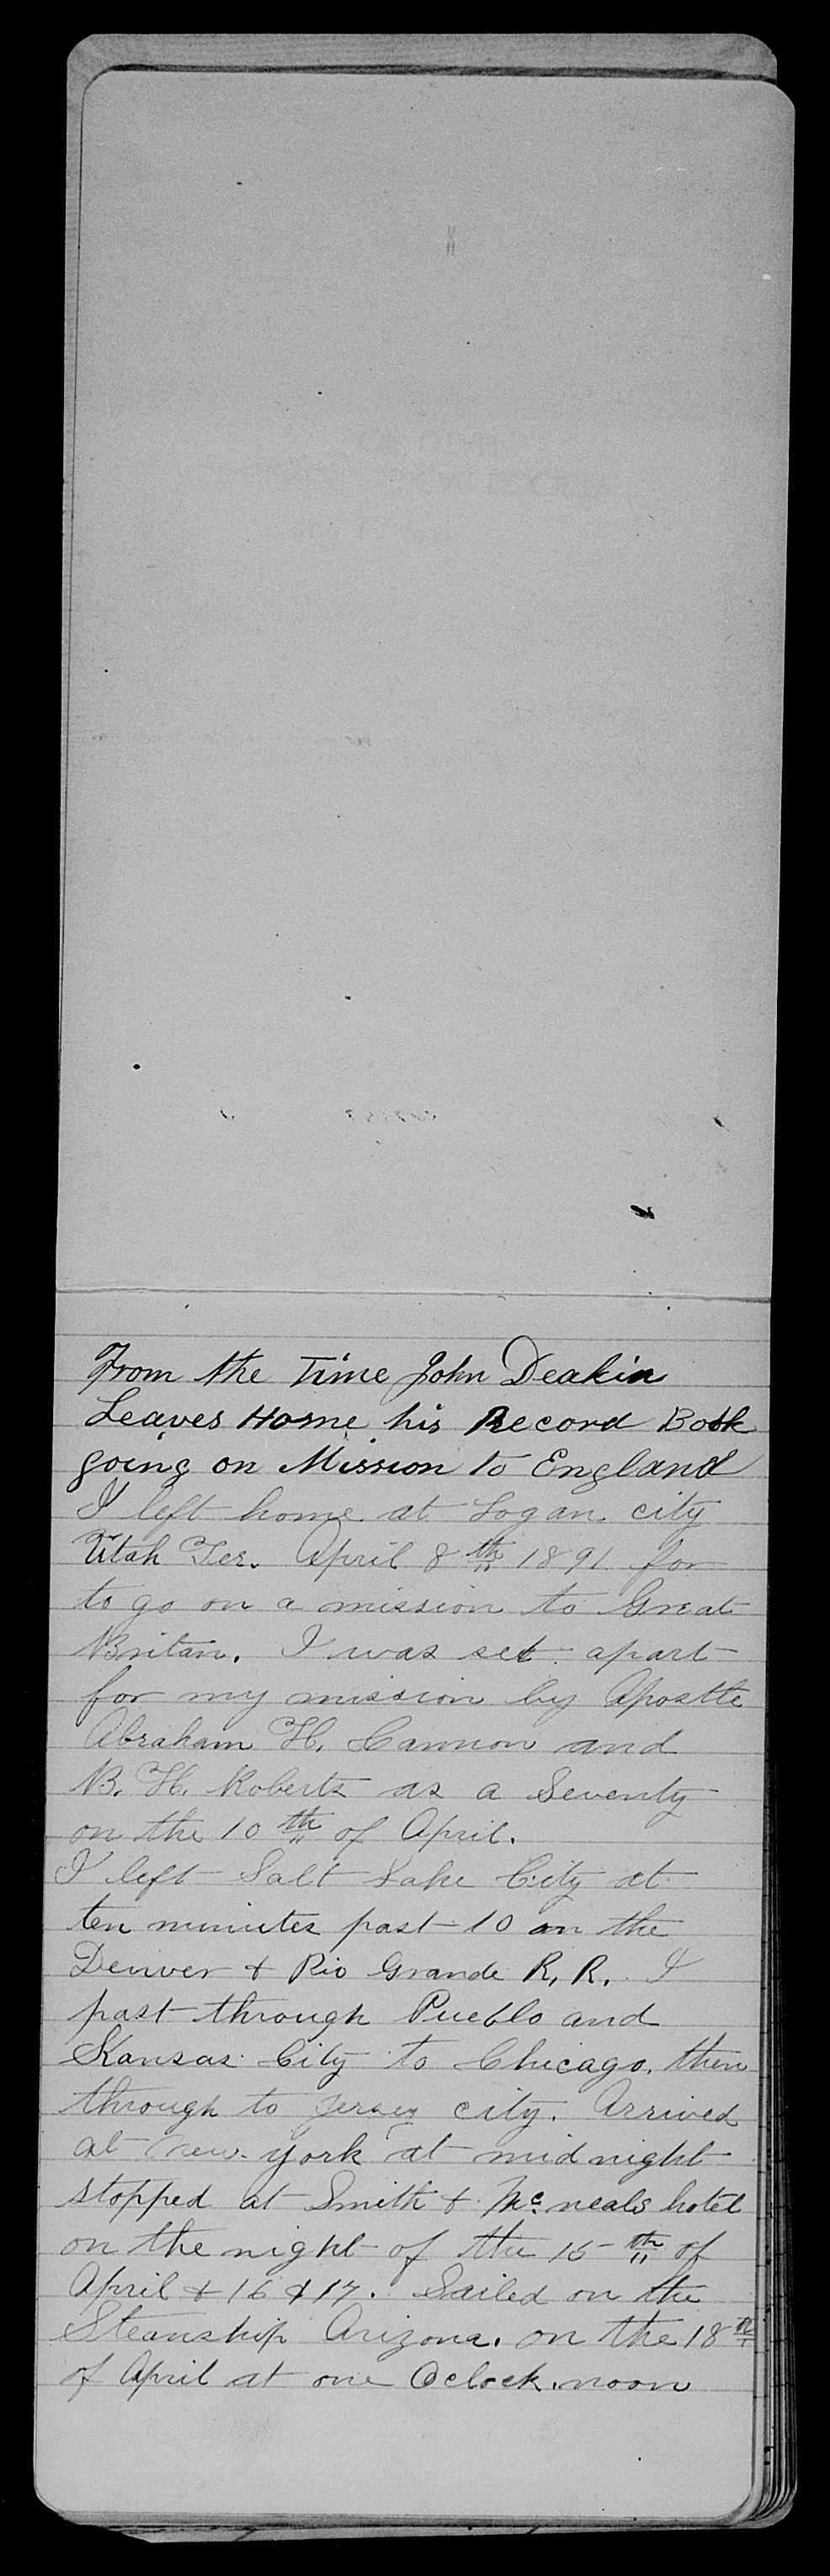 From the Time John Deakin
Leaves Home his Record Book
going on Mission to England
I left home at Logan city
Utah Ter. April 8th 1891 for
to go on a mission to Great
Britan. I was set apart
for my mission by Apostle
Abraham H. Cannon and
B. H. Roberts as a Seventy
on the 10th of April.
I left Salt Lake City at
ten minutes past 10 on the
Denver & Rio Grande R. R. I
past through Pueblo and
Kansas City to Chicago. then
through to Jersey city. Arrived
at New York at midnight
stopped at Smith & Mc neals hotel
on the night of the 15th of
April & 16 & 17. Sailed on the
Steanship Arizona. on the 18th
of April at one Oclock. noon